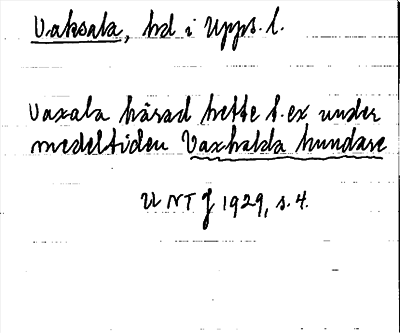 Vaksala, hd i Upps. l.
Vaxala härad hette t. ex under
medeltiden Vaxhalda hundare
UNT J 1929, s. 4.